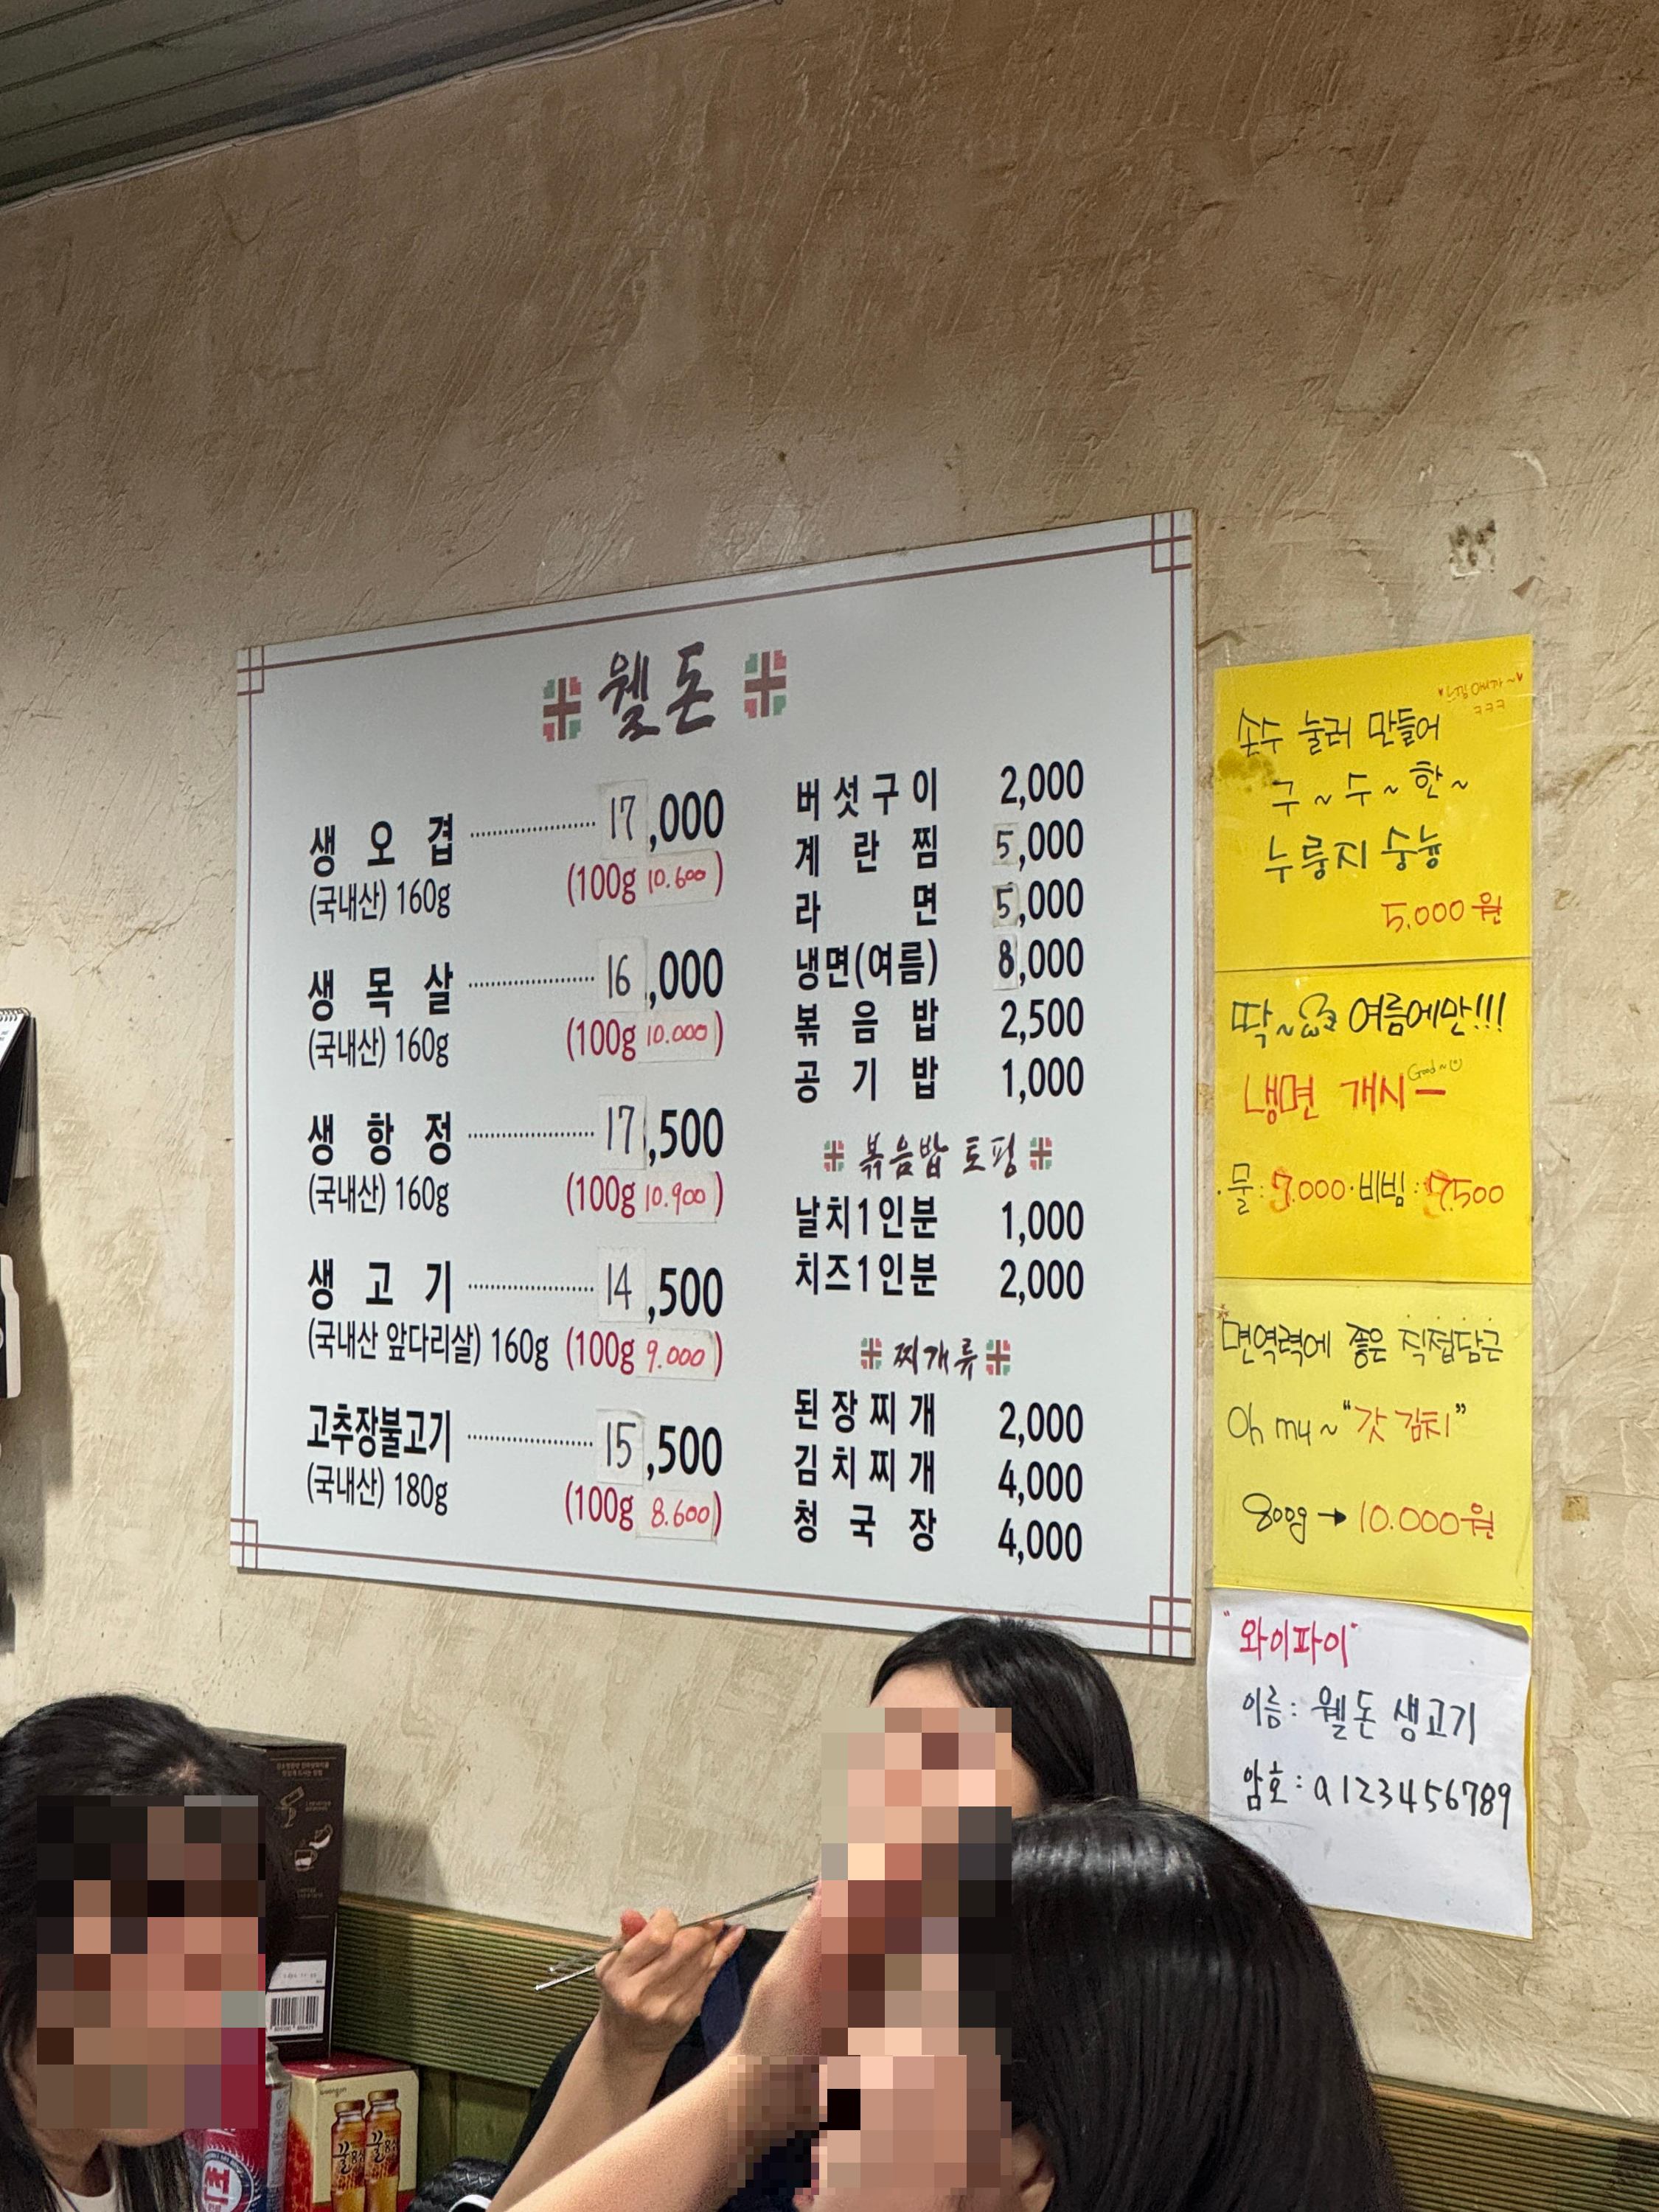 웰돈
생오겹 17,000
(국내산) 160g (100g 10.600)
생목살 16,000
(국내산) 160g (100g 10.000)
생항정 17,500
(국내산) 160g (100g 10.900)
생고기 14,500
(국내산 앞다리살) 160g (100g 9.000)
고추장불고기 15,500
(국내산) 180g (100g 8.600)
버섯구이 2,000
계란찜 5,000
라면 5,000
냉면(여름) 8,000
볶음밥 2,500
공기밥 1,000
볶음밥 토핑
날치1인분 1,000
치즈1인분 2,000
찌개류
된장찌개 2,000
김치찌개 4,000
청국장 4,000
ㅋㅋㅋ
손수 눌러 만들어
구~수~한~
누룽지 숭늉
5.000원
딱~ 여름에만!!!
냉면 개시
Good~
·물: .000·비빔: .500
면역력에 좋은 직접담근
Oh my~"갓김치"
800g→10.000원
"와이파이"
이름: 웰돈 생고기
암호: a123456789
woongjin
꿀
꿀